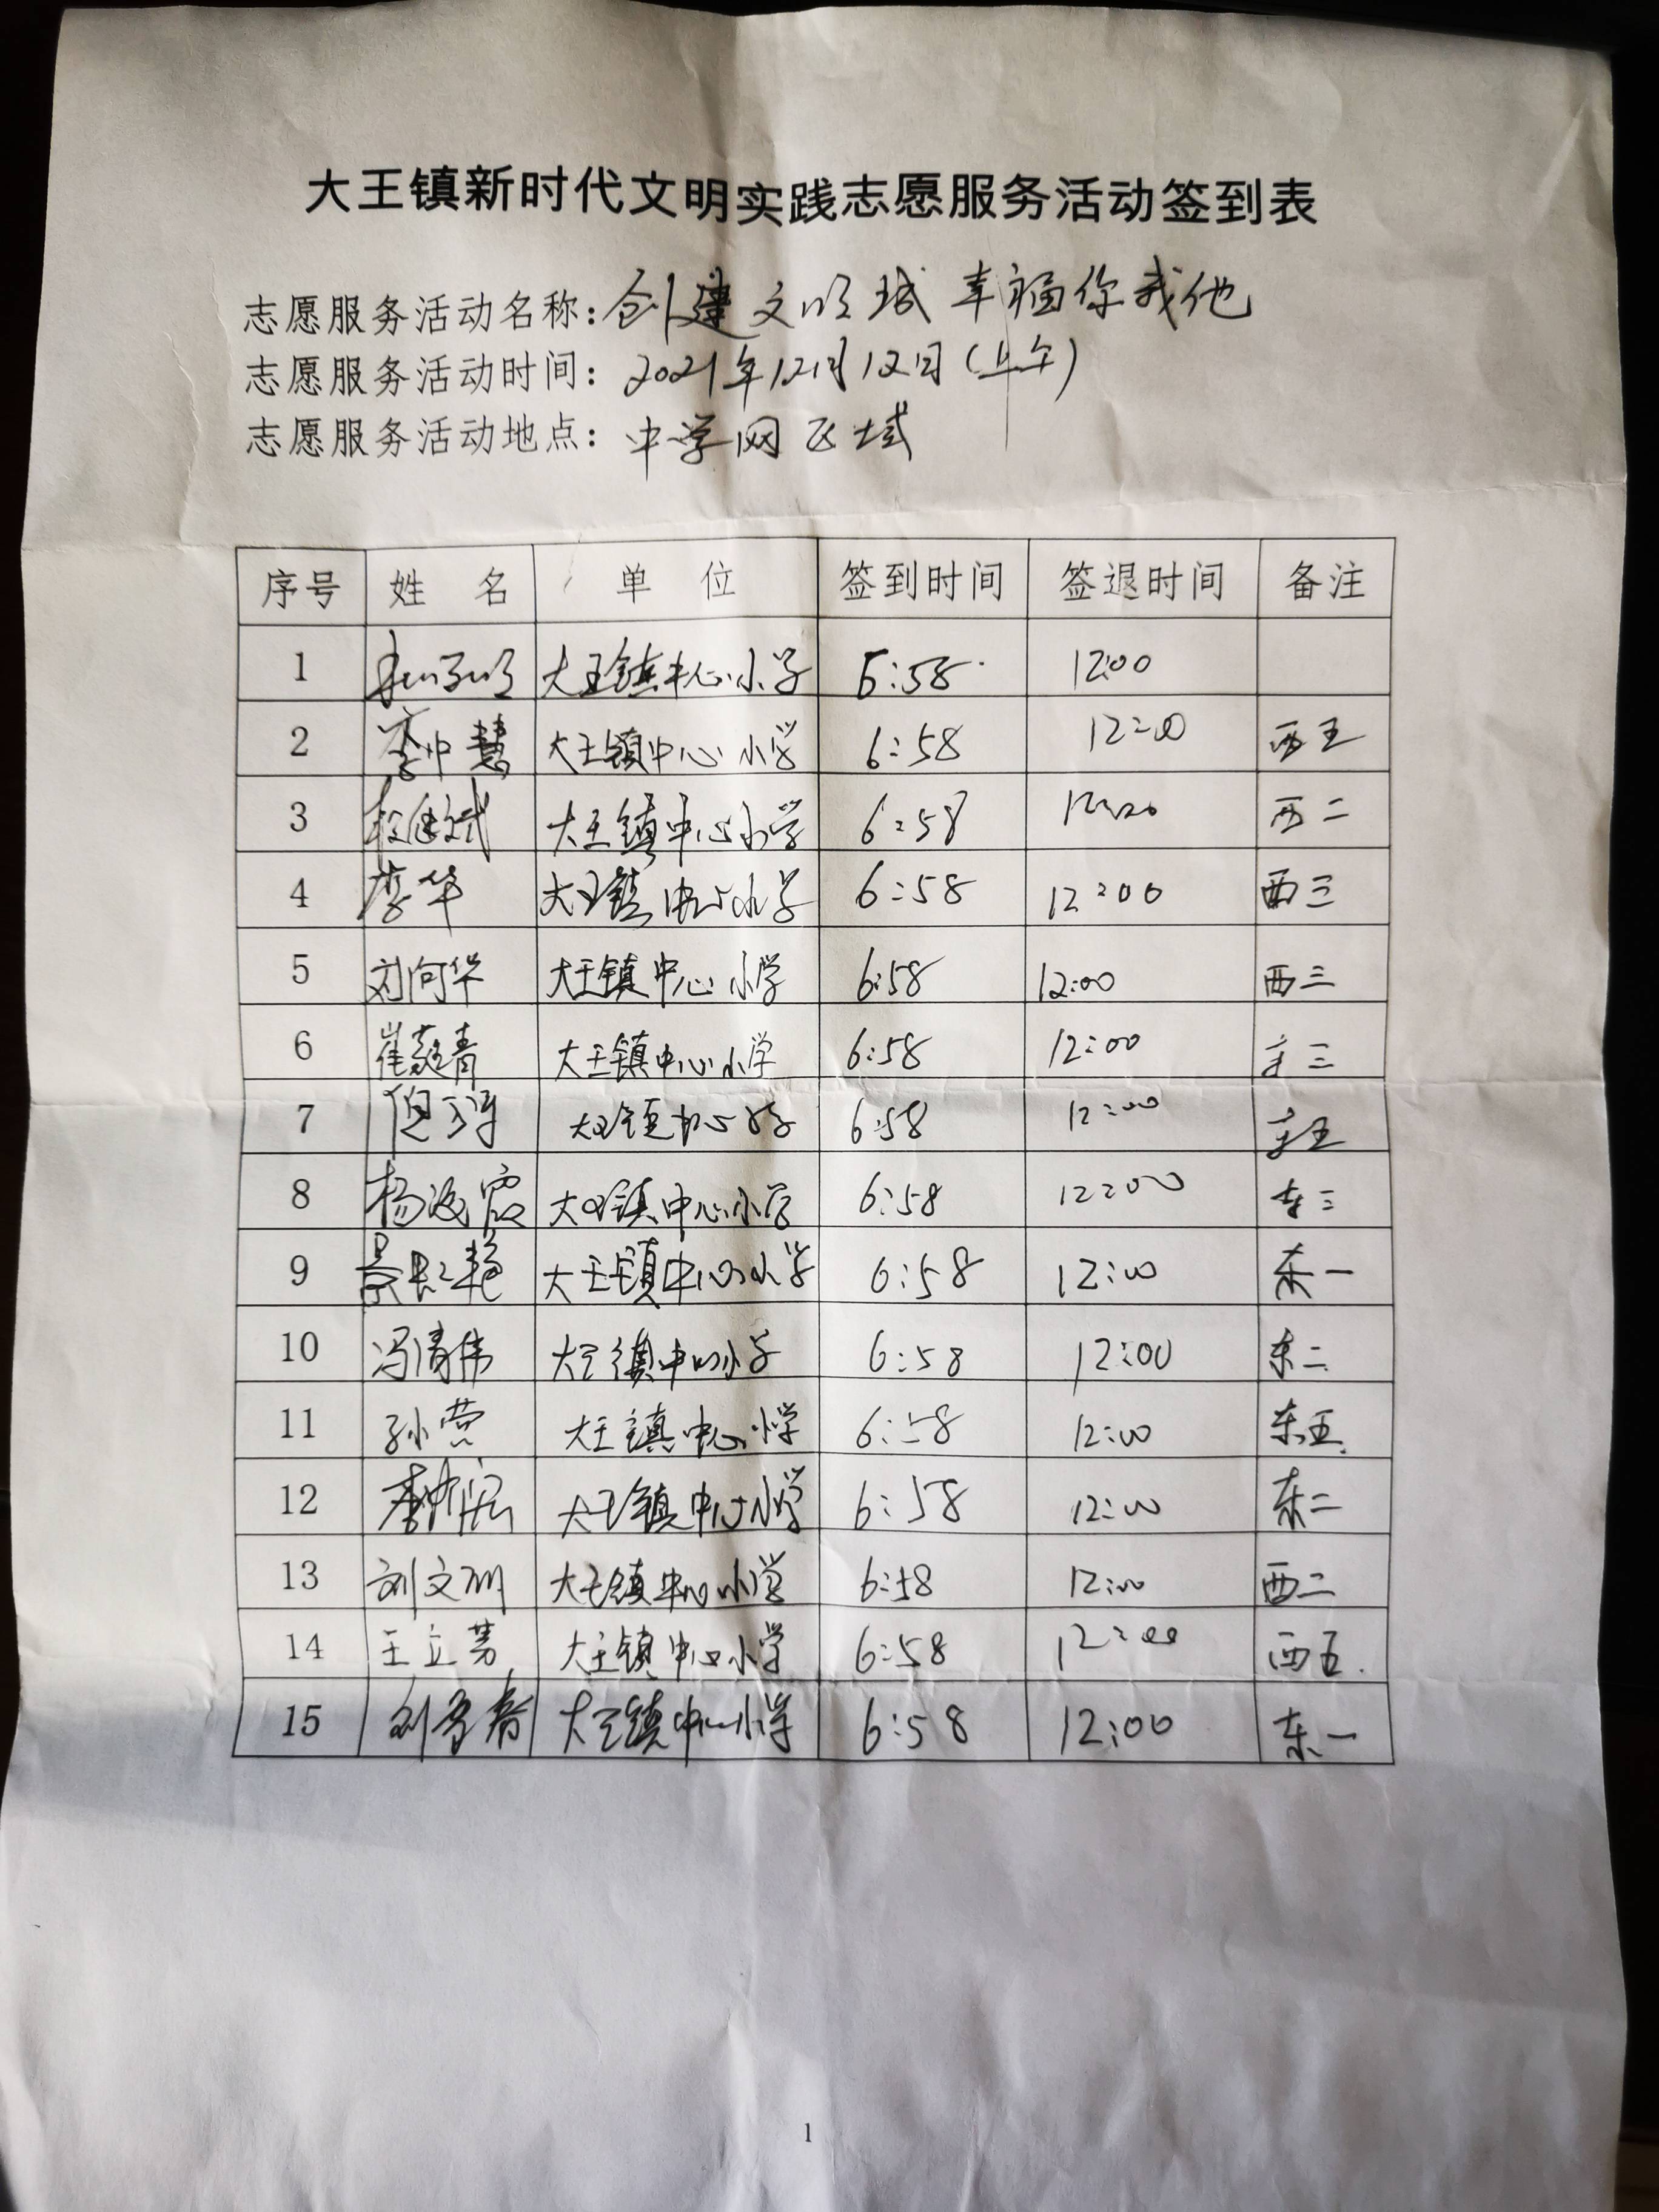 大王镇新时代文明实践志愿服务活动签到表
志愿服务活动名称：创建文明城 幸福你我他
志愿服务活动时间：2021年12月12日（上午）
志愿服务活动地点：中学网区域
序号 姓名 单位 签到时间 签退时间 备注
1 大王镇中心小学 6:58 12:00
2 李中慧 大王镇中心小学 6:58 12:00 西五
3 大王镇中心小学 6:58 12:00 西二
4 李华 大王镇中心小学 6:58 12:00 西三
5 刘向华 大王镇中心小学 6:58 12:00 西三
6 崔 青 大王镇中心小学 6:58 12:00 三
7 大王镇中心小学 6:58 12:00 五
8 杨海霞 大王镇中心小学 6:58 12:00 东三
9 大王镇中心小学 6:58 12:00 东一
10 冯清伟 大王镇中心小学 6:58 12:00 东二
11 孙小营 大王镇中心小学 6:58 12:00 东五
12 大王镇中心小学 6:58 12:00 东二
13 刘文 大王镇中心小学 6:58 12:00 西二
14 王立芳 大王镇中心小学 6:58 12:00 西五
15 刘 大王镇中心小学 6:58 12:00 东一
1